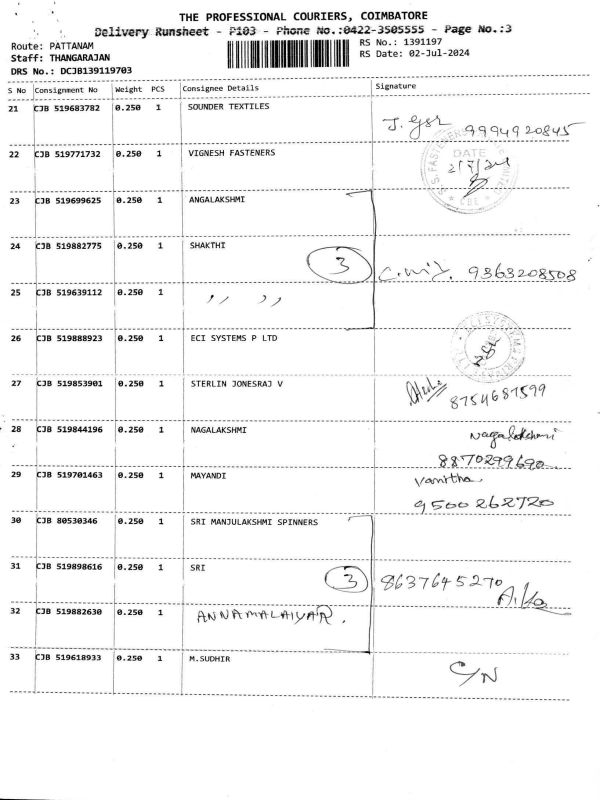 THE PROFESSIONAL COURIERS, COIMBATORE
Delivery Runsheet - P103 - Phone No.:0422-3505555 - Page No.:3
Route: PATTANAM
RS No.: 1391197
Staff: THANGARAJAN
RS Date: 02-Jul-2024
DRS No.: DCJB139119703
S No Consignment No Weight PCS Consignee Details Signature
21 CJB 519683782 0.250 1 SOUNDER TEXTILES
9994920845
22 CJB 519771732 0.250 1 VIGNESH FASTENERS
DATE
2/7/24
CBE
23 CJB 519699625 0.250 1 ANGALAKSHMI
24 CJB 519882775 0.250 1 SHAKTHI
3 9363208508
25 CJB 519639112 0.250 1 ,, ,,
26 CJB 519888923 0.250 1 ECI SYSTEMS P LTD
27 CJB 519853901 0.250 1 STERLIN JONESRAJ V
8754687599
28 CJB 519844196 0.250 1 NAGALAKSHMI Nagalakshmi
8870299690
29 CJB 519701463 0.250 1 MAYANDI Vanitha
9500262720
30 CJB 80530346 0.250 1 SRI MANJULAKSHMI SPINNERS
31 CJB 519898616 0.250 1 SRI
3 8637645270
32 CJB 519882630 0.250 1 ANNAMALAIYAR.
33 CJB 519618933 0.250 1 M.SUDHIR
C/N